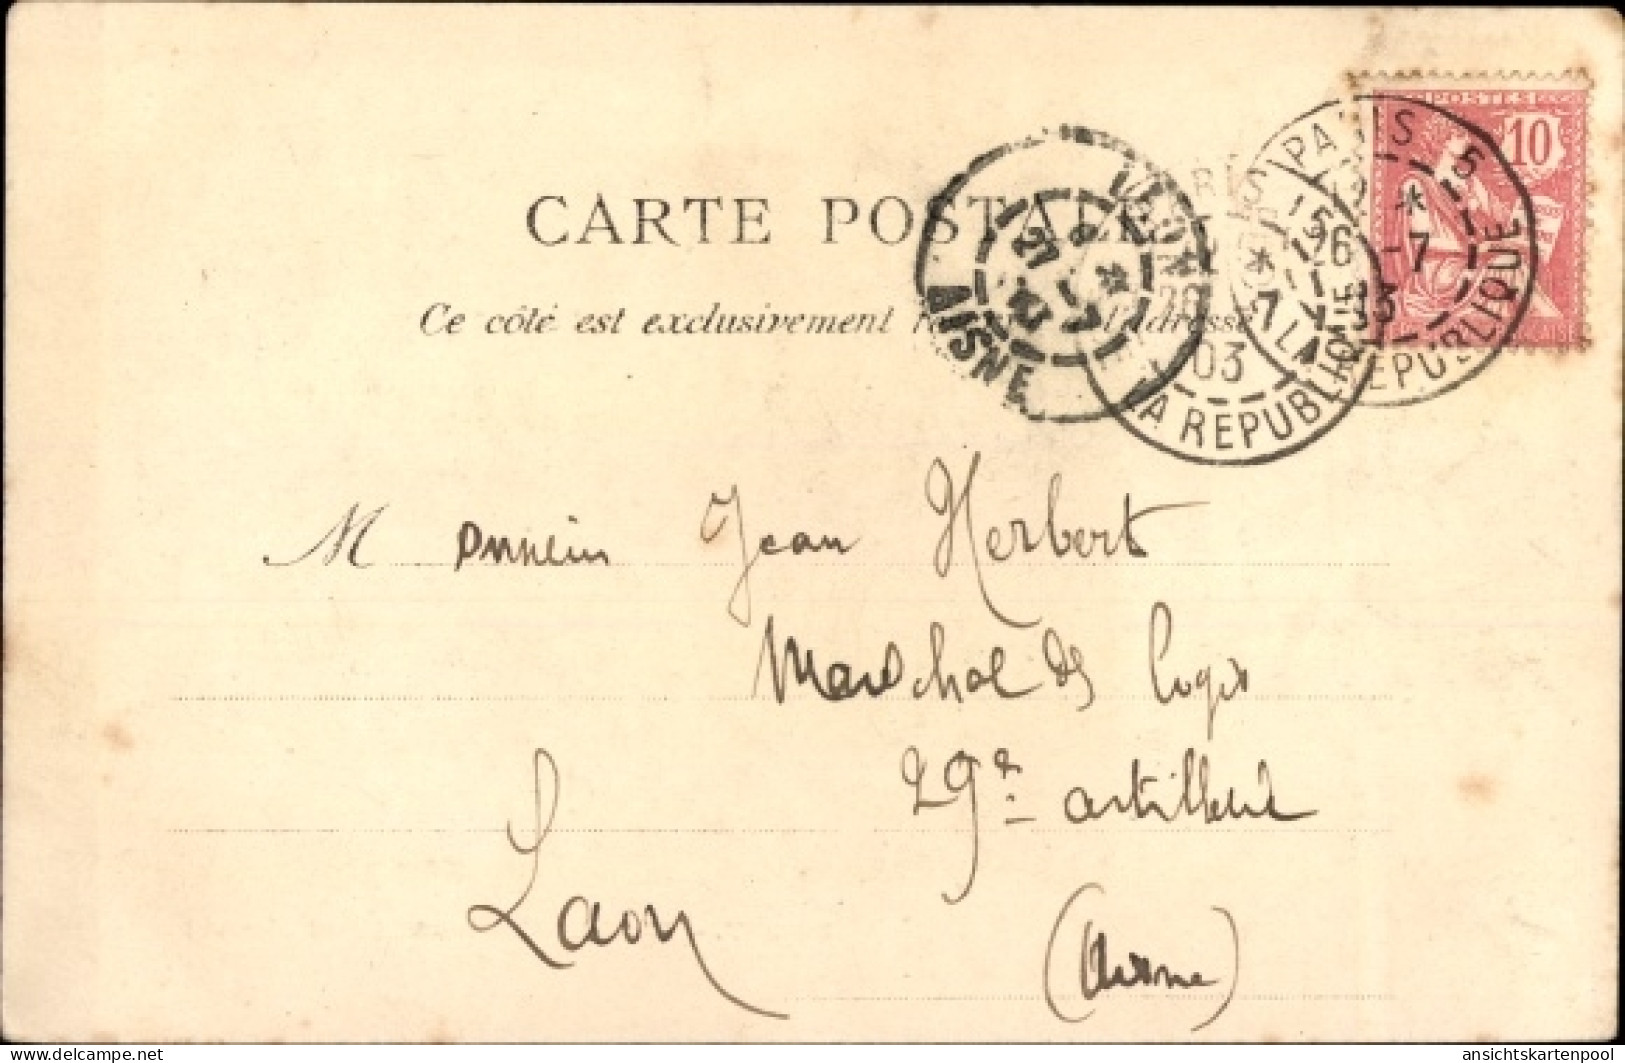 POSTES
10
PARIS
5
26 -7
03
LA REPUBLIQUE
CARTE POSTALE
Ce côté est exclusivement réservé à l'adresse
03
LA REPUBLIQUE
27 -7
AISNE
M onsieur Jean Herbert
Marechal des Logis
29e artillerie
Laon
(Aisne)
www.delcampe.net
ansichtskartenpool